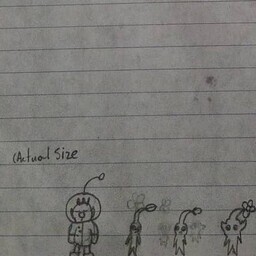 (Actual Size